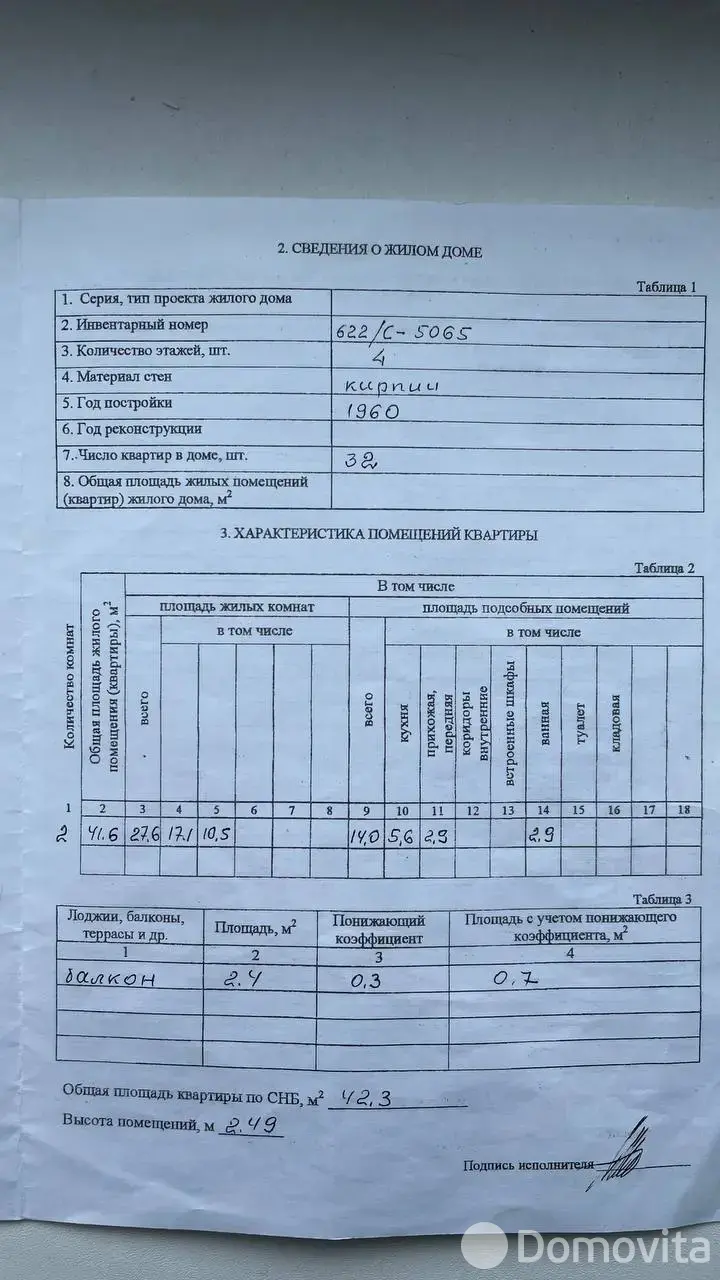 2. СВЕДЕНИЯ О ЖИЛОМ ДОМЕ
Таблица 1
1. Серия, тип проекта жилого дома
2. Инвентарный номер 622/С-5065
3. Количество этажей, шт. 4
4. Материал стен кирпич
5. Год постройки 1960
6. Год реконструкции
7. Число квартир в доме, шт. 32
8. Общая площадь жилых помещений
(квартир) жилого дома, м²
3. ХАРАКТЕРИСТИКА ПОМЕЩЕНИЙ КВАРТИРЫ
Таблица 2
Количество комнат
Общая площадь жилого
помещения (квартиры), м²
В том числе
площадь жилых комнат площадь подсобных помещений
всего в том числе всего в том числе
кухня
прихожая,
передняя
коридоры
внутренние
встроенные шкафы
ванная
туалет
кладовая
1 2 3 4 5 6 7 8 9 10 11 12 13 14 15 16 17 18
2 41.6 27,6 17.1 10,5 14,0 5,6 2,9 2.9
Таблица 3
Лоджии, балконы,
террасы и др.
Площадь, м²
Понижающий
коэффициент
Площадь с учетом понижающего
коэффициента, м²
1 2 3 4
балкон 2.4 0,3 0,7
Общая площадь квартиры по СНБ, м² 42,3
Высота помещений, м 2.49
Подпись исполнителя
Domovita